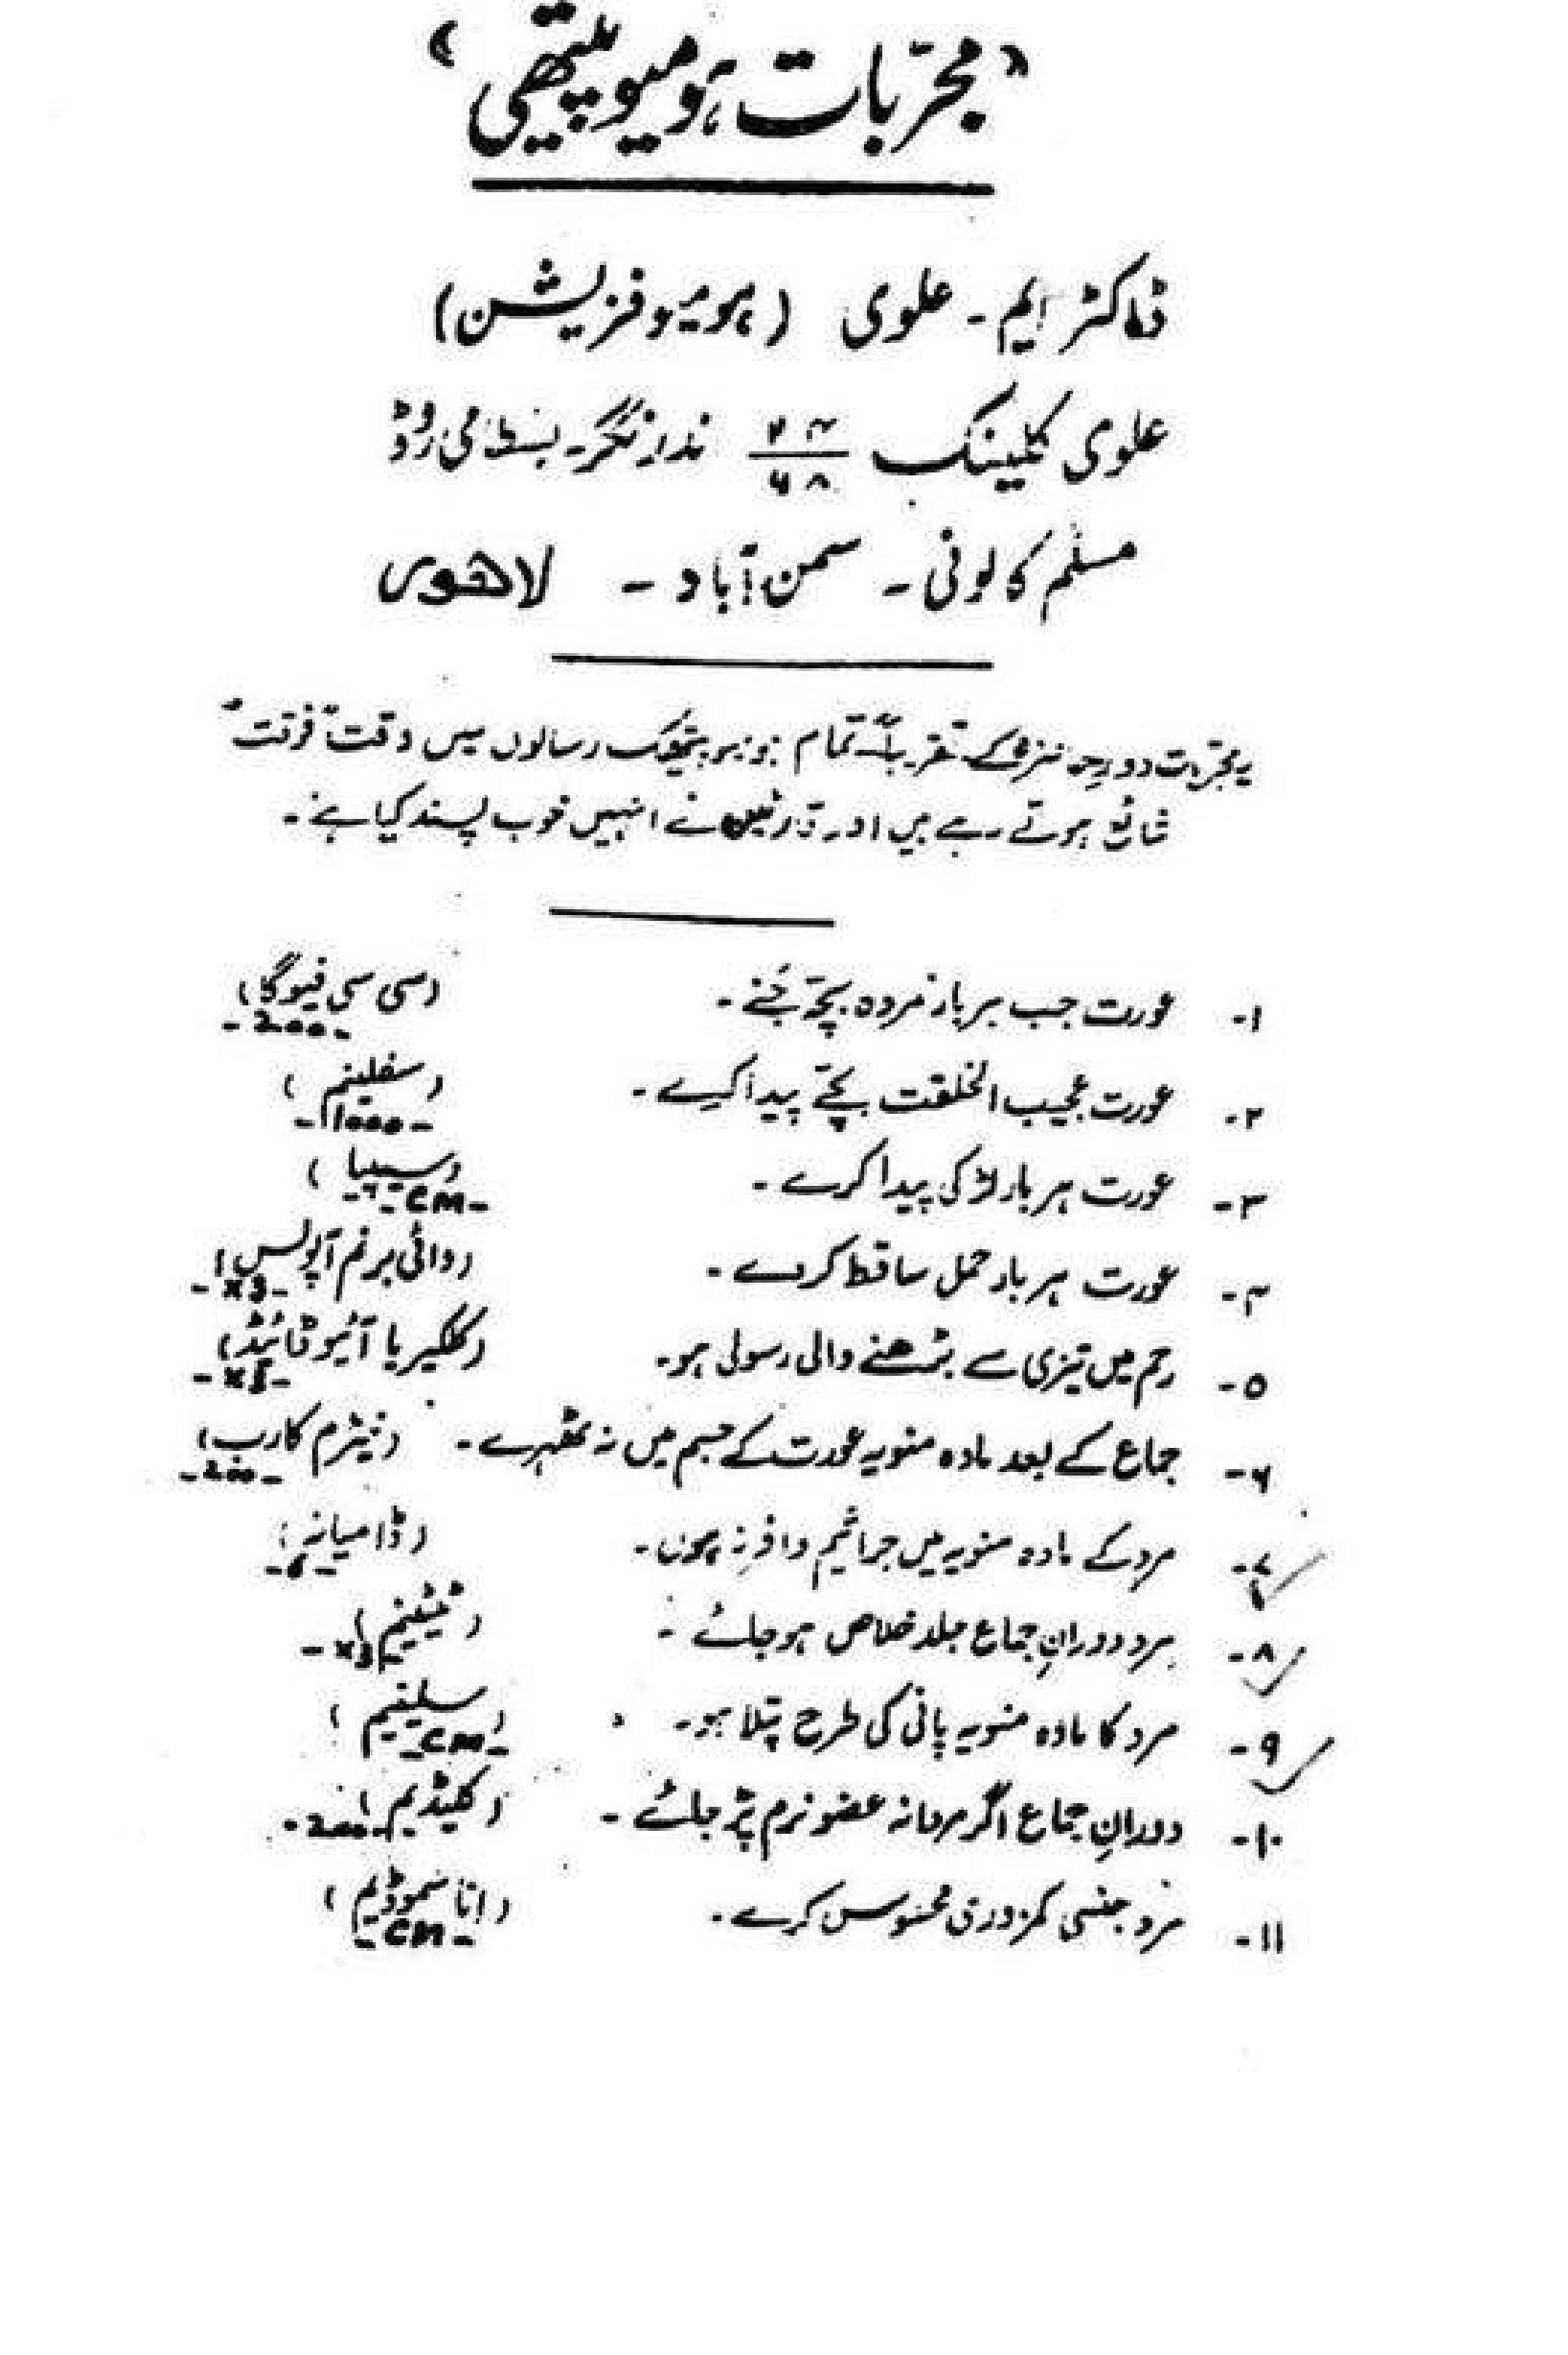 "مجرّبات ہومیوپیتھی"
ڈاکٹر ایم۔ علوی (ہومیوفزیشن)
علوی کلینک ۲۴/۶۸ نذر نگر۔ بسطامی روڈ
مسلم کالونی۔ سمن آباد۔ لاہور
یہ مجرّبات دورِ حاضرہ کے تقریباً تمام ہومیوپیتھک رسالوں میں وقتاً فوقتاً
شائع ہوتے رہے ہیں اور قارئین نے انہیں خوب پسند کیا ہے۔
۱۔ عورت جب ہر بار مردہ بچّہ جُنے۔ (سی سی فیوگا)
-200-
۲۔ عورت عجیب الخلقت بچّے پیدا کرے۔ (سفلینم)
-1000-
۳۔ عورت ہر بار لڑکی پیدا کرے۔ (سیپیا)
-CM-
۴۔ عورت ہر بار حمل ساقط کردے۔ (وائی برنم آپولس)
-x3-
۵۔ رحم میں تیزی سے بڑھنے والی رسولی ہو۔ (کلکیریا آئیوڈائیڈ)
-x3-
۶۔ جماع کے بعد مادہ منویہ عورت کے جسم میں نہ ٹھہرے۔ (نیٹرم کارب)
-200-
۷۔ مرد کے مادہ منویہ میں جراثیم وافر نہ ہوں۔ (ڈامیانہ)
-6-
۸۔ مرد دورانِ جماع جلد خلاص ہوجائے۔ (ٹیٹینیم)
-x3-
۹۔ مرد کا مادہ منویہ پانی کی طرح پتلا ہو۔ (سلینیم)
-CM-
۱۰۔ دورانِ جماع اگر مردانہ عضو نرم پڑ جائے۔ (کلیڈیم)
-200-
۱۱۔ مرد جنسی کمزوری محسوس کرے۔ (اناسموڈیم)
-CM-